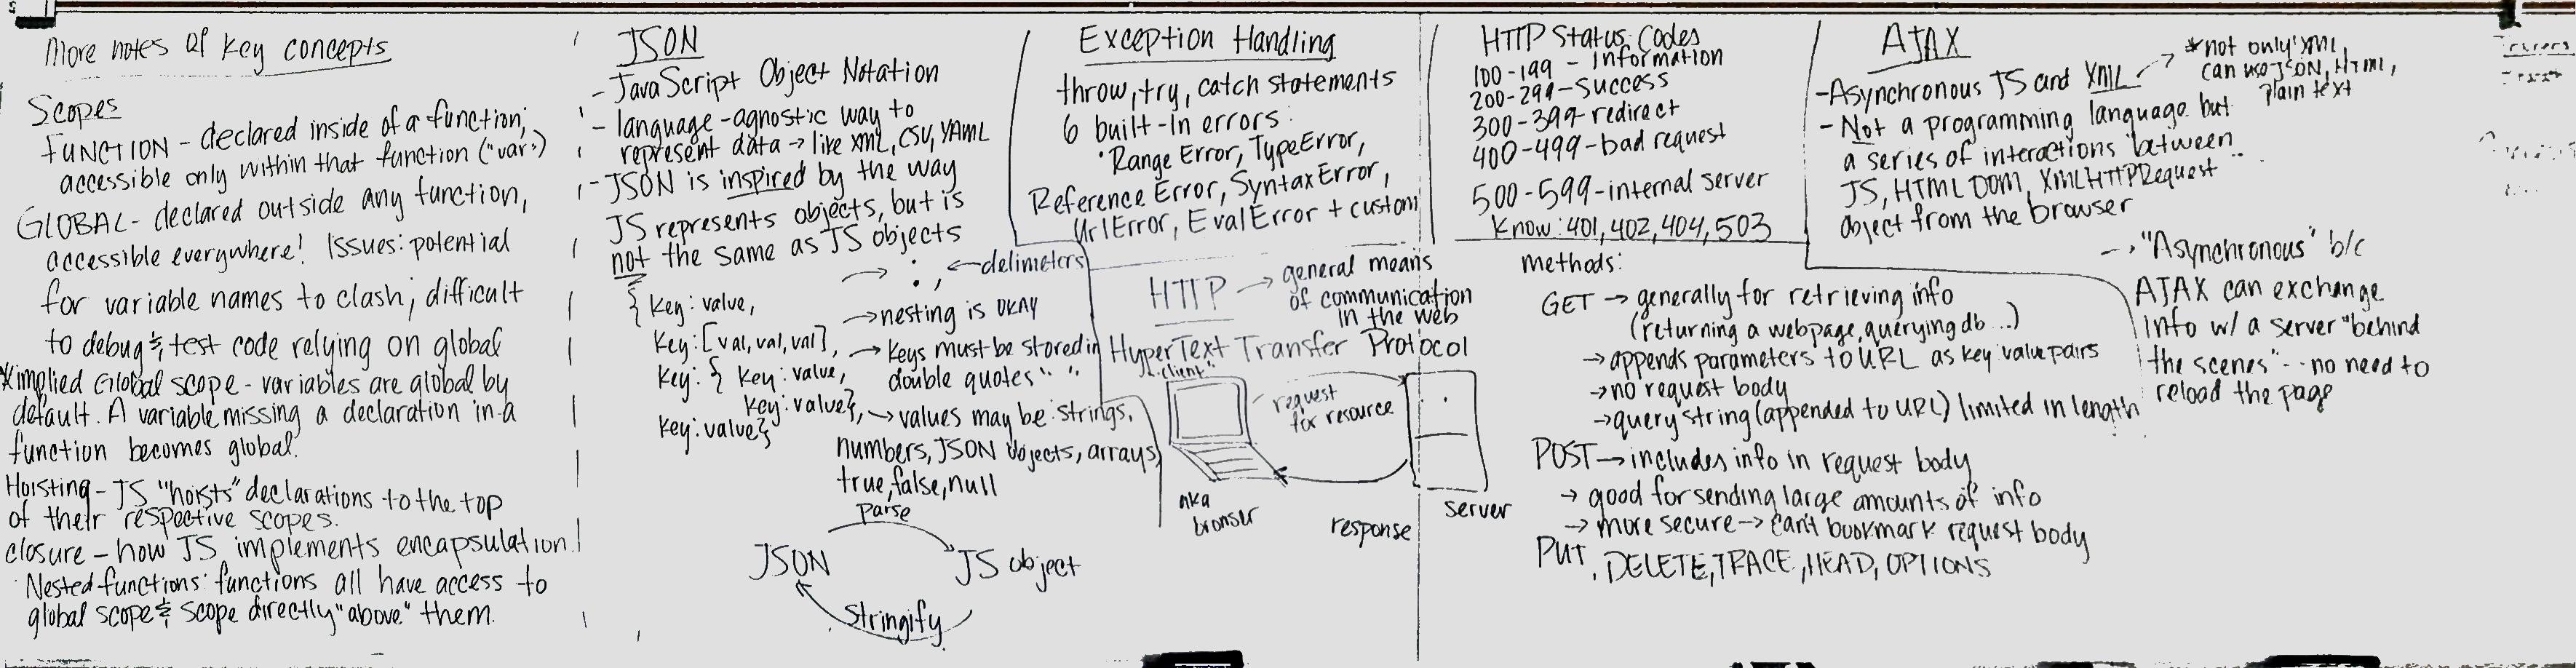 More notes of key concepts
Scopes
FUNCTION - declared inside of a function;
accessible only within that function ("var")
GLOBAL - declared outside any function,
accessible everywhere! Issues: potential
for variable names to clash; difficult
to debug & test code relying on global
*implied Global scope - variables are global by
default. A variable missing a declaration in a
function becomes global.
Hoisting - JS "hoists" declarations to the top
of their respective scopes.
closure - how JS implements encapsulation!
Nested functions: functions all have access to
global scope & scope directly "above" them.
JSON
- JavaScript Object Notation
- language-agnostic way to
represent data → like XML, CSV, YAML
- JSON is inspired by the way
JS represents objects, but is
not the same as JS objects
→ : , ← delimeters
{ key: value,
key: [val, val, val],
key: { key: value,
key: value},
key: value}
→ nesting is OKAY
→ keys must be stored in
double quotes " "
→ values may be: strings,
numbers, JSON objects, arrays,
true, false, null
parse
JSON
JS object
Stringify
Exception Handling
throw, try, catch statements
6 built-in errors:
Range Error, TypeError,
Reference Error, SyntaxError,
UrlError, EvalError + custom
HTTP → general means
of communication
in the web
HyperText Transfer Protocol
"client"
request
for resource
aka
browser
response
server
HTTP Status Codes
100-199 - Information
200-299 - Success
300-399 - redirect
400-499 - bad request
500-599 - internal server
Know: 401, 402, 404, 503
methods:
GET → generally for retrieving info
(returning a webpage, querying db...)
→ appends parameters to URL as key value pairs
→ no request body
→ query string (appended to URL) limited in length
POST → includes info in request body
→ good for sending large amounts of info
→ more secure → can't bookmark request body
PUT, DELETE, TRACE, HEAD, OPTIONS
AJAX
- Asynchronous JS and XML
→ *not only XML,
can use JSON, HTML,
plain text
- Not a programming language but
a series of interactions between
JS, HTML DOM, XMLHTTPRequest
object from the browser
→ "Asynchronous" b/c
AJAX can exchange
info w/ a server "behind
the scenes" -- no need to
reload the page